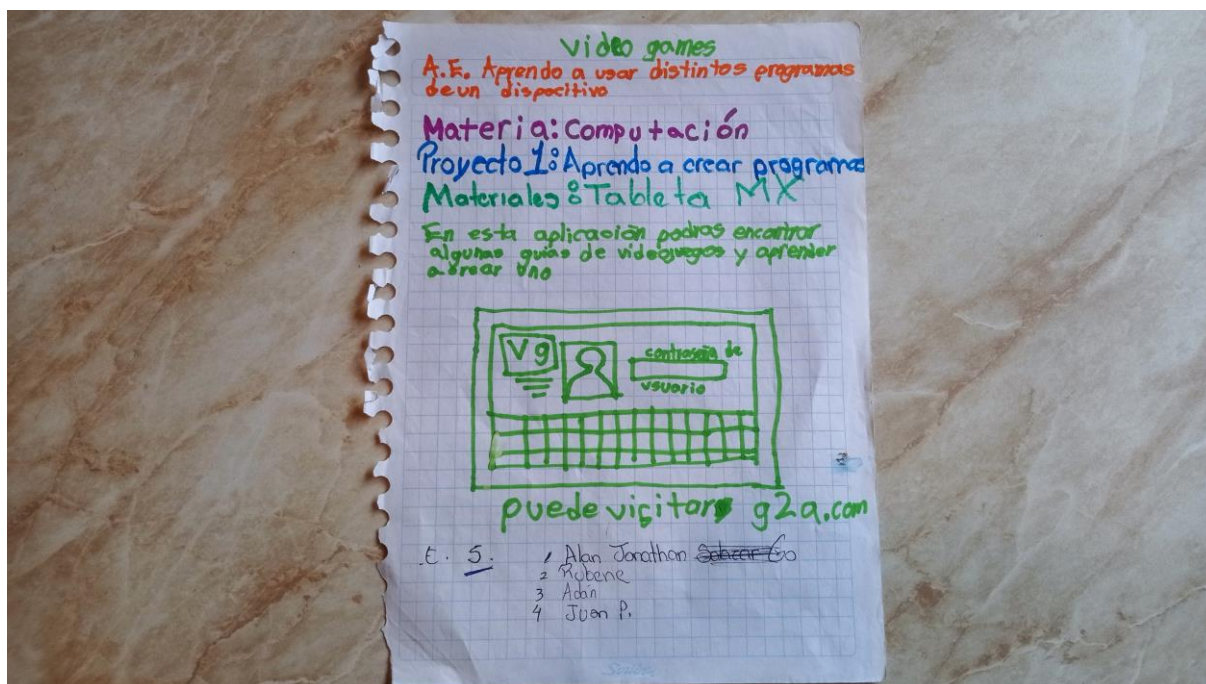 video games
A.E. Aprendo a usar distintos programas
de un dispocitivo
Materia: Computación
Proyecto 1: Aprendo a crear programas
Materiales: Tableta MX
En esta aplicación podras encontrar
algunas guias de videojuegos y aprender
a crear uno
Vg
contraseña de
usuario
puede visitar g2a.com
E. 5.
1 Alan Jonathan
2 Rubene
3 Adán
4 Juan P.